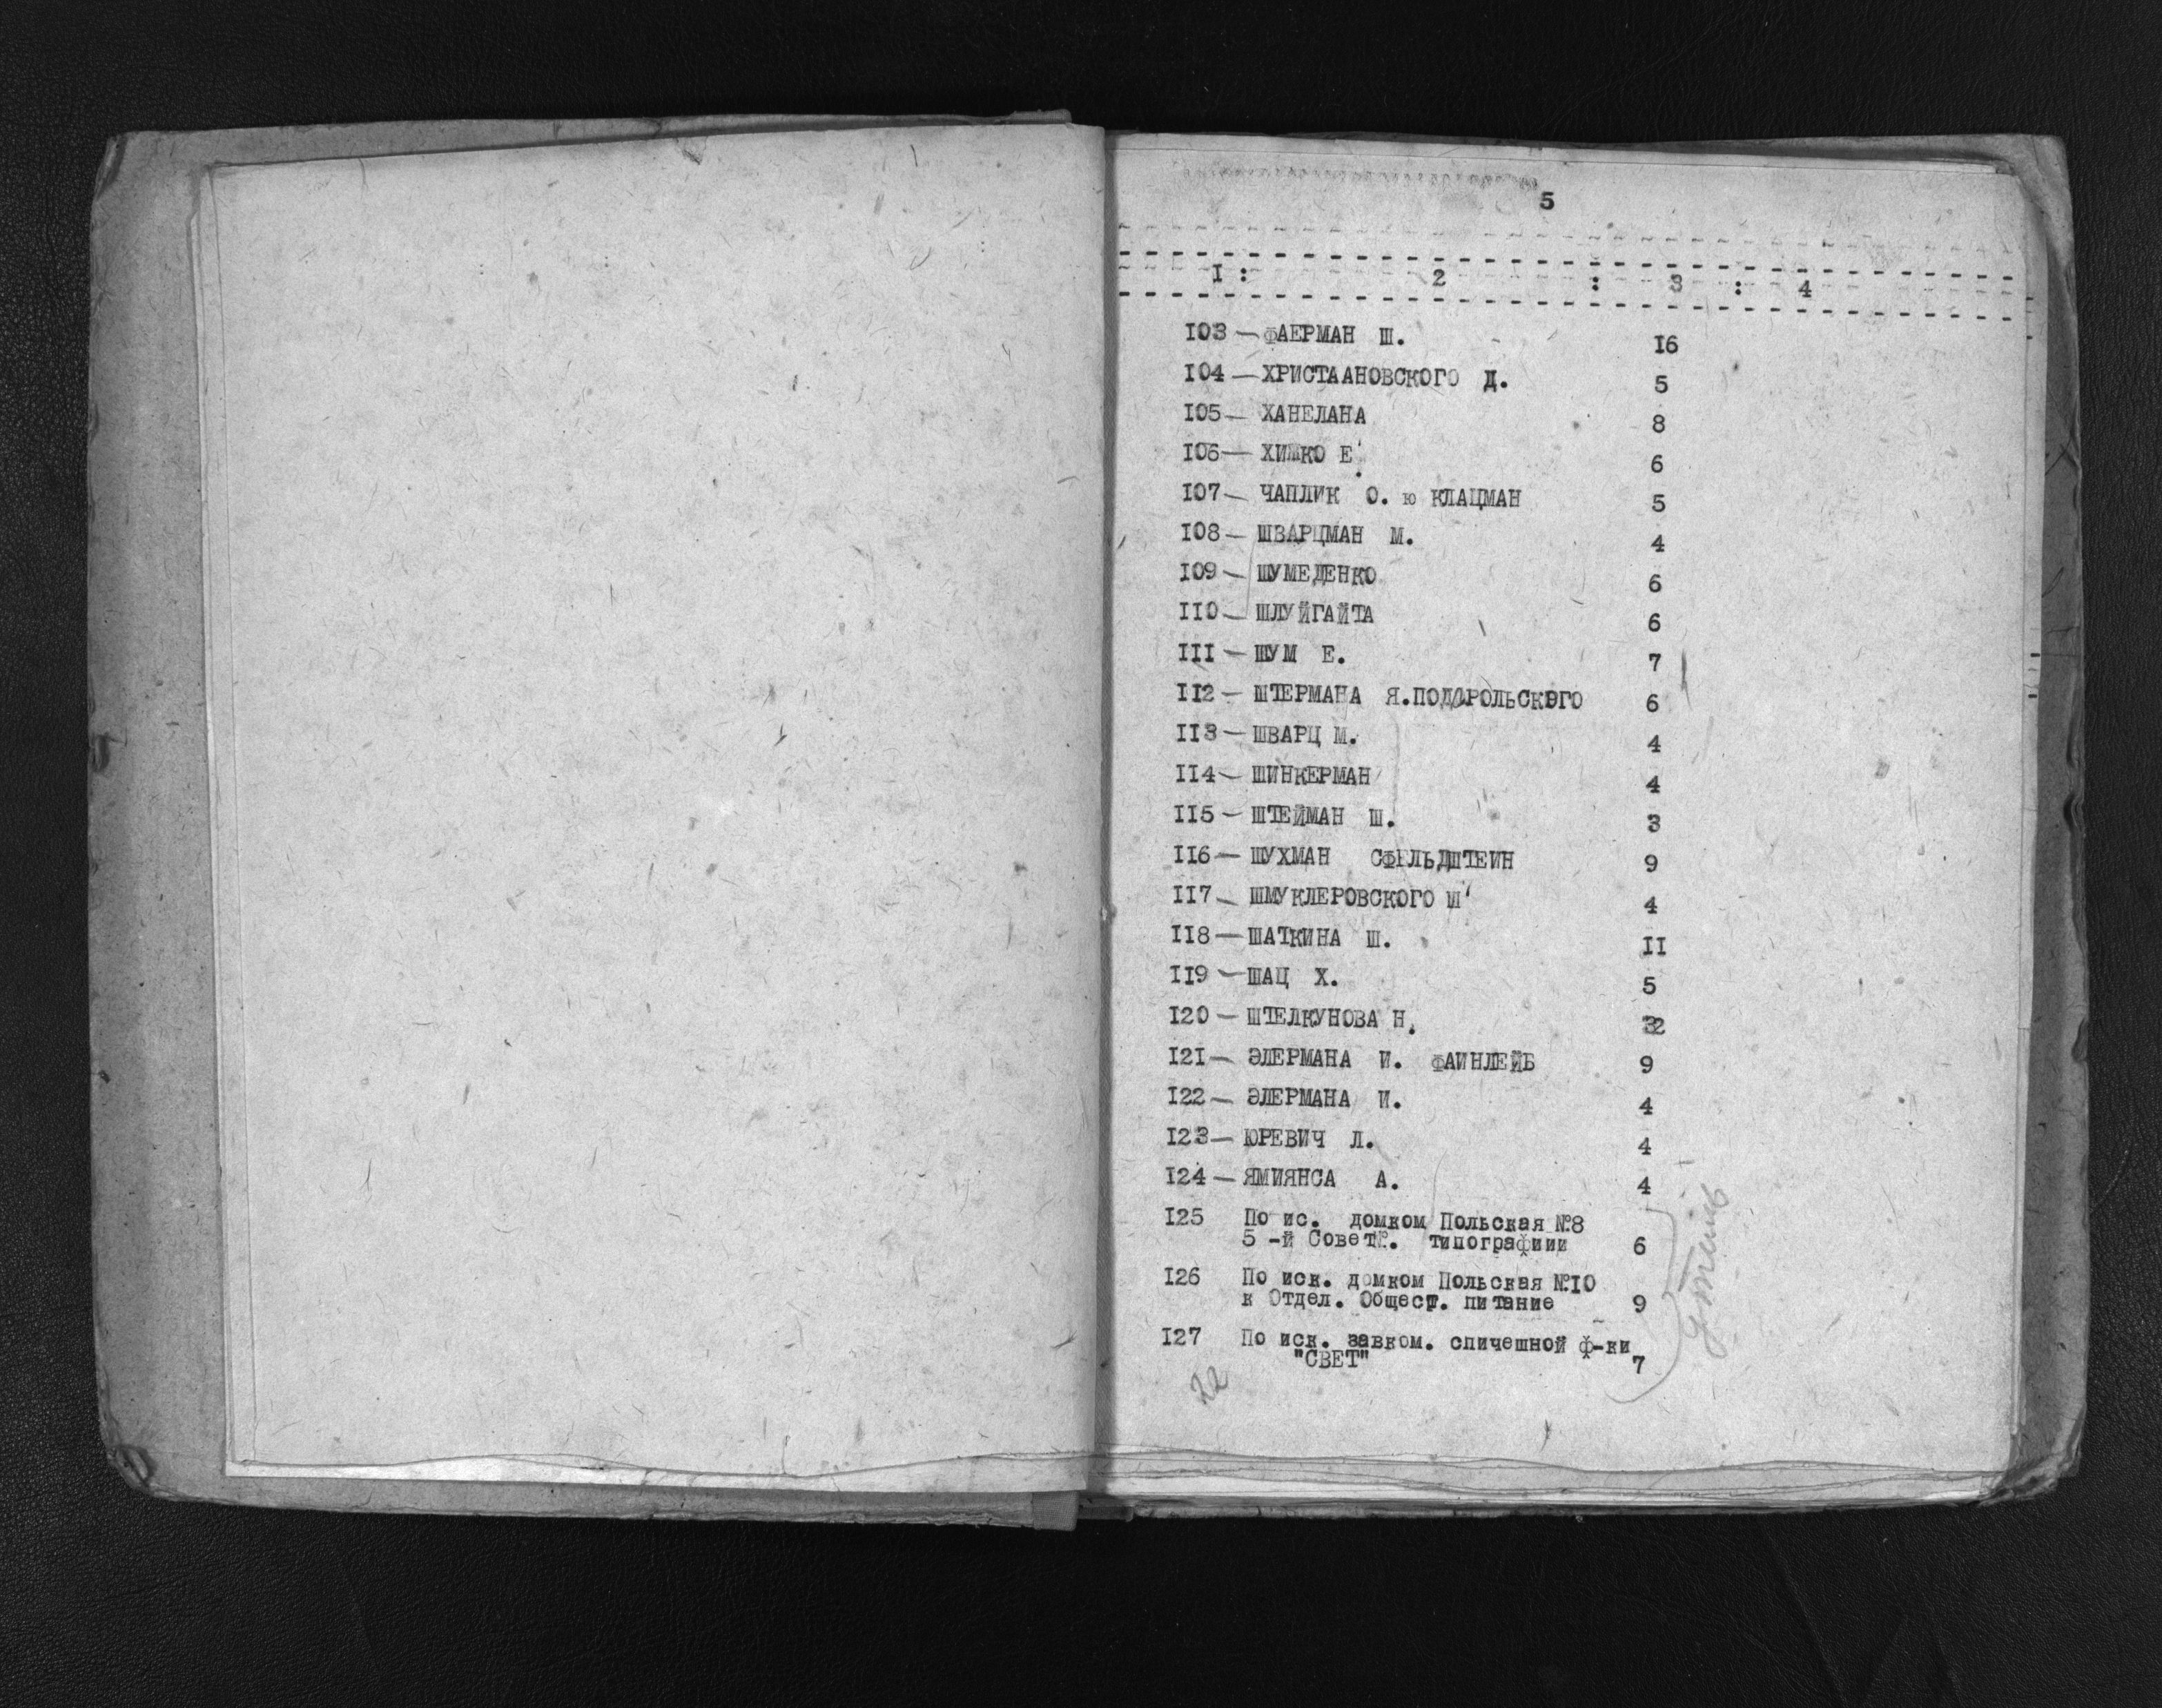 5
I : 2 : 3 : 4
I03 — ФАЕРМАН Ш. I6
I04 — ХРИСТААНОВСКОГО Д. 5
I05 — ХАНЕЛАНА 8
I06 — ХИЖКО Е. 6
I07 — ЧАПЛИК О. ю КЛАЦМАН 5
I08 — ШВАРЦМАН М. 4
I09 — ШУМЕДЕНКО 6
II0 — ШЛУЙГАЙТА 6
III — ШУМ Е. 7
II2 — ШТЕРМАНА Я. 6
II3 — ШВАРЦ М. 4
II4 — ШИНКЕРМАН 4
II5 — ШТЕЙМАН Ш. 3
II6 — ШУХМАН СФЕЛЬДШТЕИН 9
II7 — ШМУКЛЕРОВСКОГО Ш 4
II8 — ШАТКИНА Ш. II
II9 — ШАЦ Х. 5
I20 — ШТЕЛКУНОВА Н.
I21 — ЭЛЕРМАНА И. ФАИНЛЕЙБ 9
I22 — ЭЛЕРМАНА И. 4
I23 — ЮРЕВИЧ Л. 4
I24 — ЯМИЯНСА А. 4
I25 По ис. домком Польская №8
5 -й Совет. типографиии 6
I26 По иск. домком Польская №I0
к Отдел. Общест. питание 9
I27 По иск. завком. спичешной ф-ки
"СВЕТ" 7
22